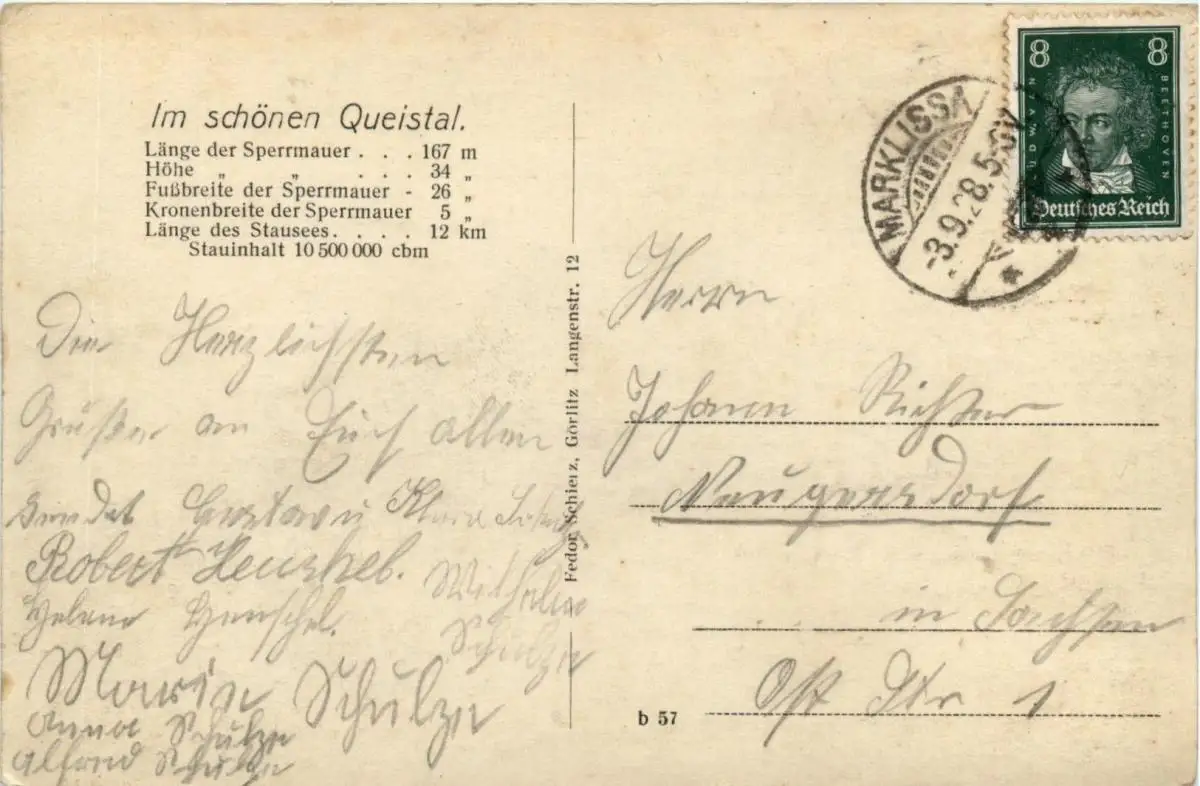 Im schönen Queistal.
Länge der Sperrmauer . . . 167 m
Höhe „ „ . . . 34 „
Fußbreite der Sperrmauer - 26 „
Kronenbreite der Sperrmauer 5 „
Länge des Stausees. . . . . 12 km
Stauinhalt 10 500 000 cbm
Die Herzlichsten
Grüße an Euch allen
sendet Gustav u Klara
Robert Henschel.
Helene Henschel.
Wilhelm
Schulze
Marie Schulze
Anna Schulze
Alfred Schulze
Fedor Schierz, Görlitz Langenstr. 12
8 8
LUDW. VAN BEETHOVEN
Deutsches Reich
MARKLISSA
-3.9.28.5-6
Herrn
Johann Richter
Neugersdorf
in Sachsen
Ost Str 1
b 57